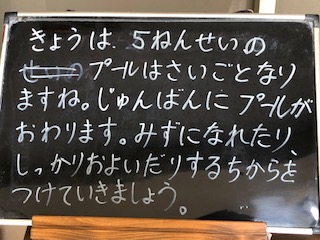 きょうは、5ねんせいの
プールはさいごとなり
ますね。じゅんばんにプールが
おわります。みずになれたり、
しっかりおよいだりするちからを
つけていきましょう。